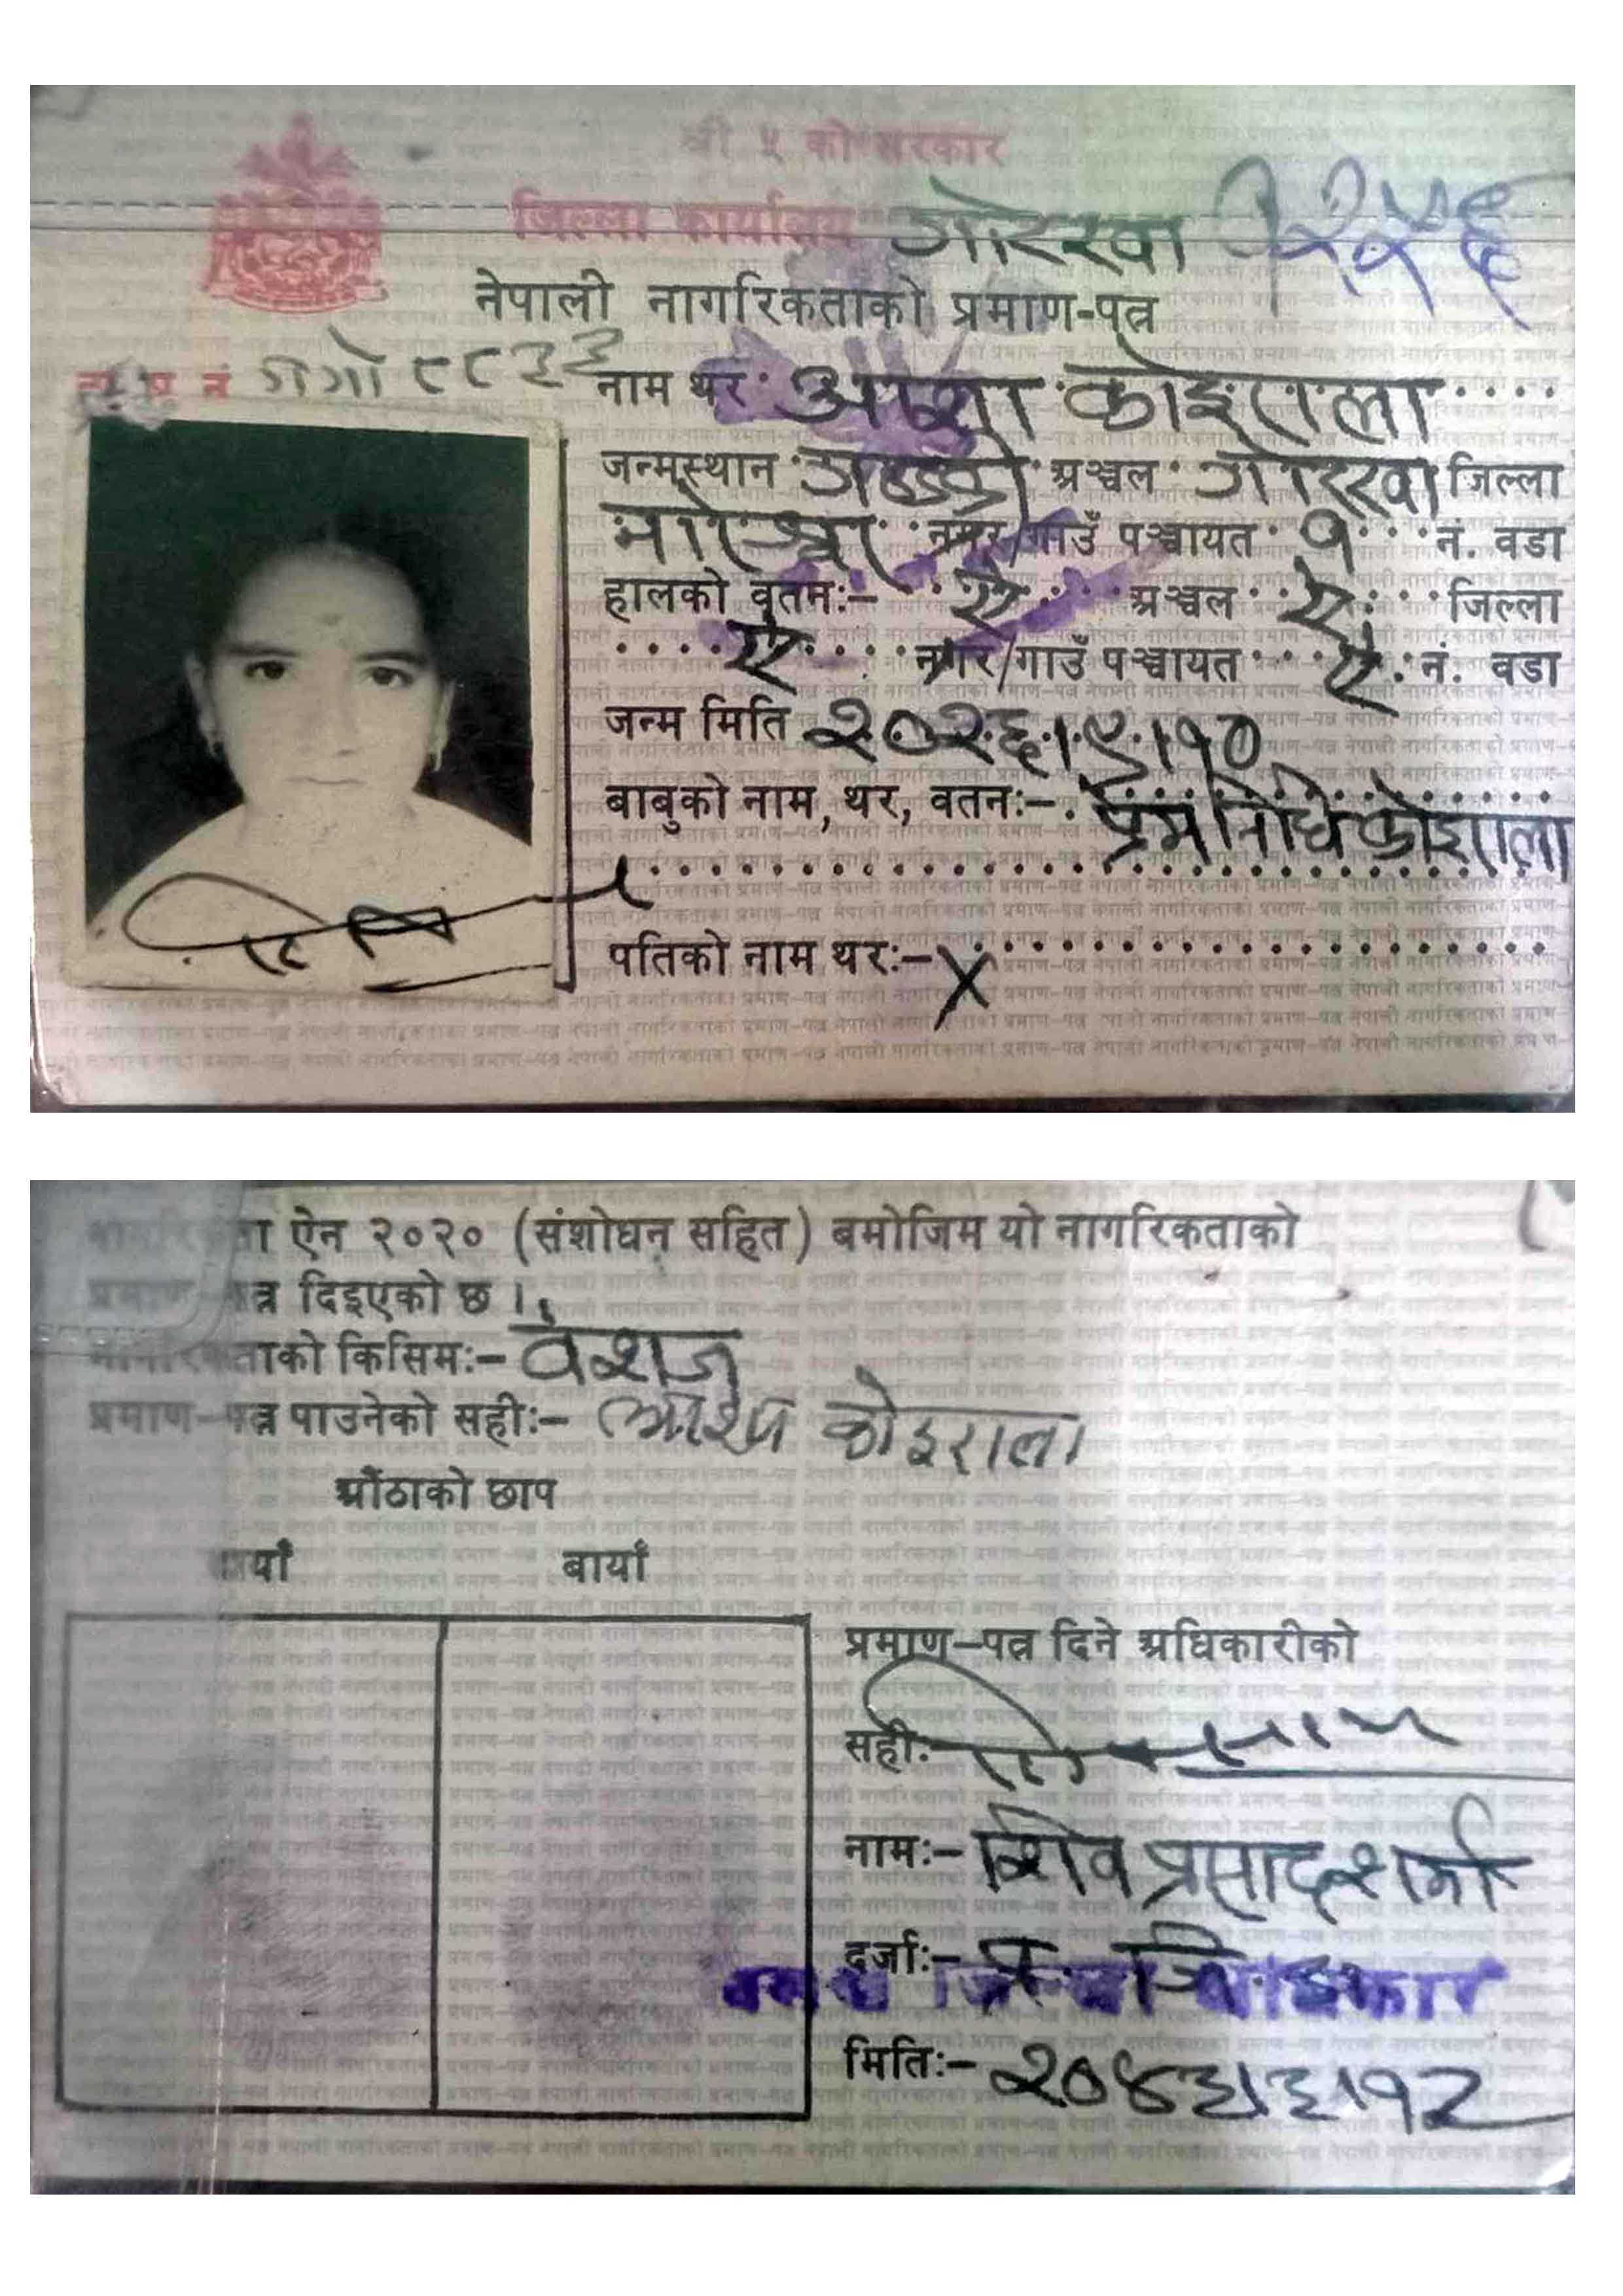 श्री ५ को सरकार
जिल्ला कार्यालय गोरखा
नेपाली नागरिकताको प्रमाण-पत्र
ना. प्र. नं
नाम थर आशा कोइराला
जन्मस्थान गण्डकी अञ्चल गोरखा जिल्ला
नगर/गाउँ पञ्चायत १ नं. वडा
हालको वतनः- ऐ अञ्चल ऐ जिल्ला
ऐ नगर/गाउँ पञ्चायत ऐ नं. वडा
जन्म मिति २०२६।९।१०
बाबुको नाम, थर, वतनः- प्रेमनिधि कोइराला
पतिको नाम थरः- X
नागरिकता ऐन २०२० (संशोधन सहित) बमोजिम यो नागरिकताको
प्रमाण-पत्र दिइएको छ ।
नागरिकताको किसिमः- वंशज
प्रमाण-पत्र पाउनेको सहीः- आशा कोइराला
औंठाको छाप
दायाँ बायाँ
प्रमाण-पत्र दिने अधिकारीको
सहीः-
नामः- शिव प्रसाद शर्मा
दर्जाः- प्र. जि. अ.
प्रमुख जिल्ला अधिकारी
मितिः- २०४३।३।१२